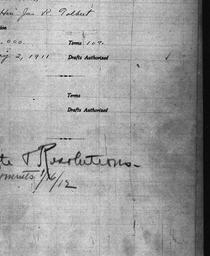 Hon. Jno. R. Tolbert
,000. Terms 10%
y 2, 1911 Drafts Authorized
Terms
Drafts Authorized
te & Resolutions.
1/16/12